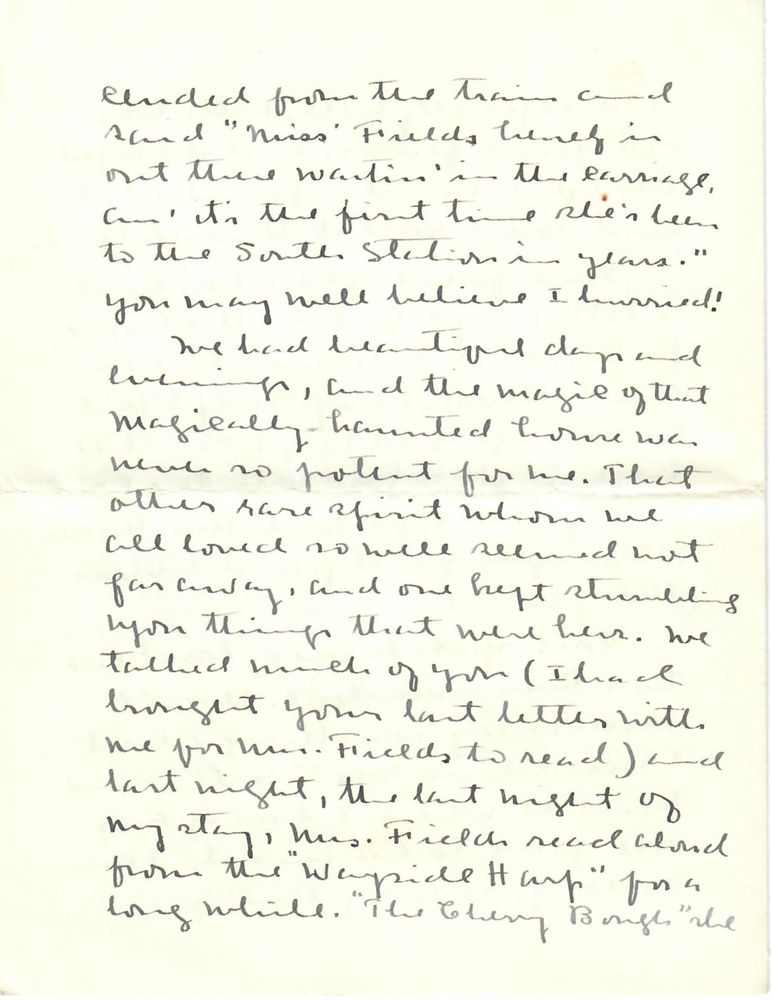 cended from the train and
said "Miss' Fields herself is
out there waitin' in the carriage,
an' it's the first time she's been
to the South Station in years."
You may well believe I hurried!
We had beautiful days and
evenings, and the magic of that
magically-haunted house was
never so potent for me. That
other rare spirit whom we
all loved so well seemed not
far away, and one kept stumbling
upon things that were hers. We
talked much of you (I had
brought your last letter with
me for Mrs. Fields to read) and
last night, the last night of
my stay, Mrs. Fields read aloud
from the "Wayside Harp" for a
long while. "The Cherry Bough" she